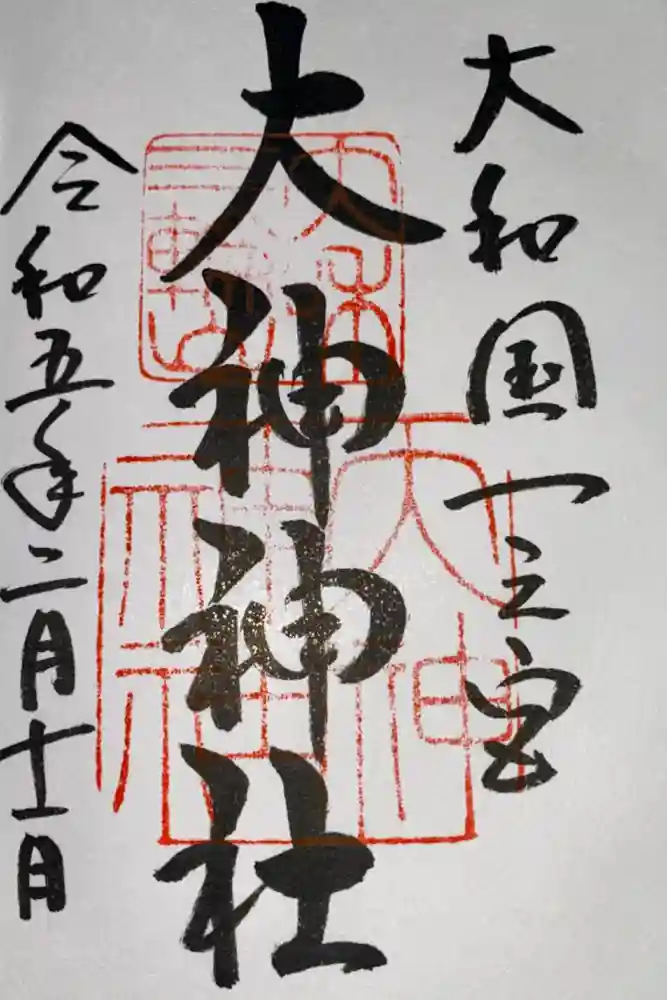 大和国一之宮
大神神社
令和五年二月十一日
大神
神社